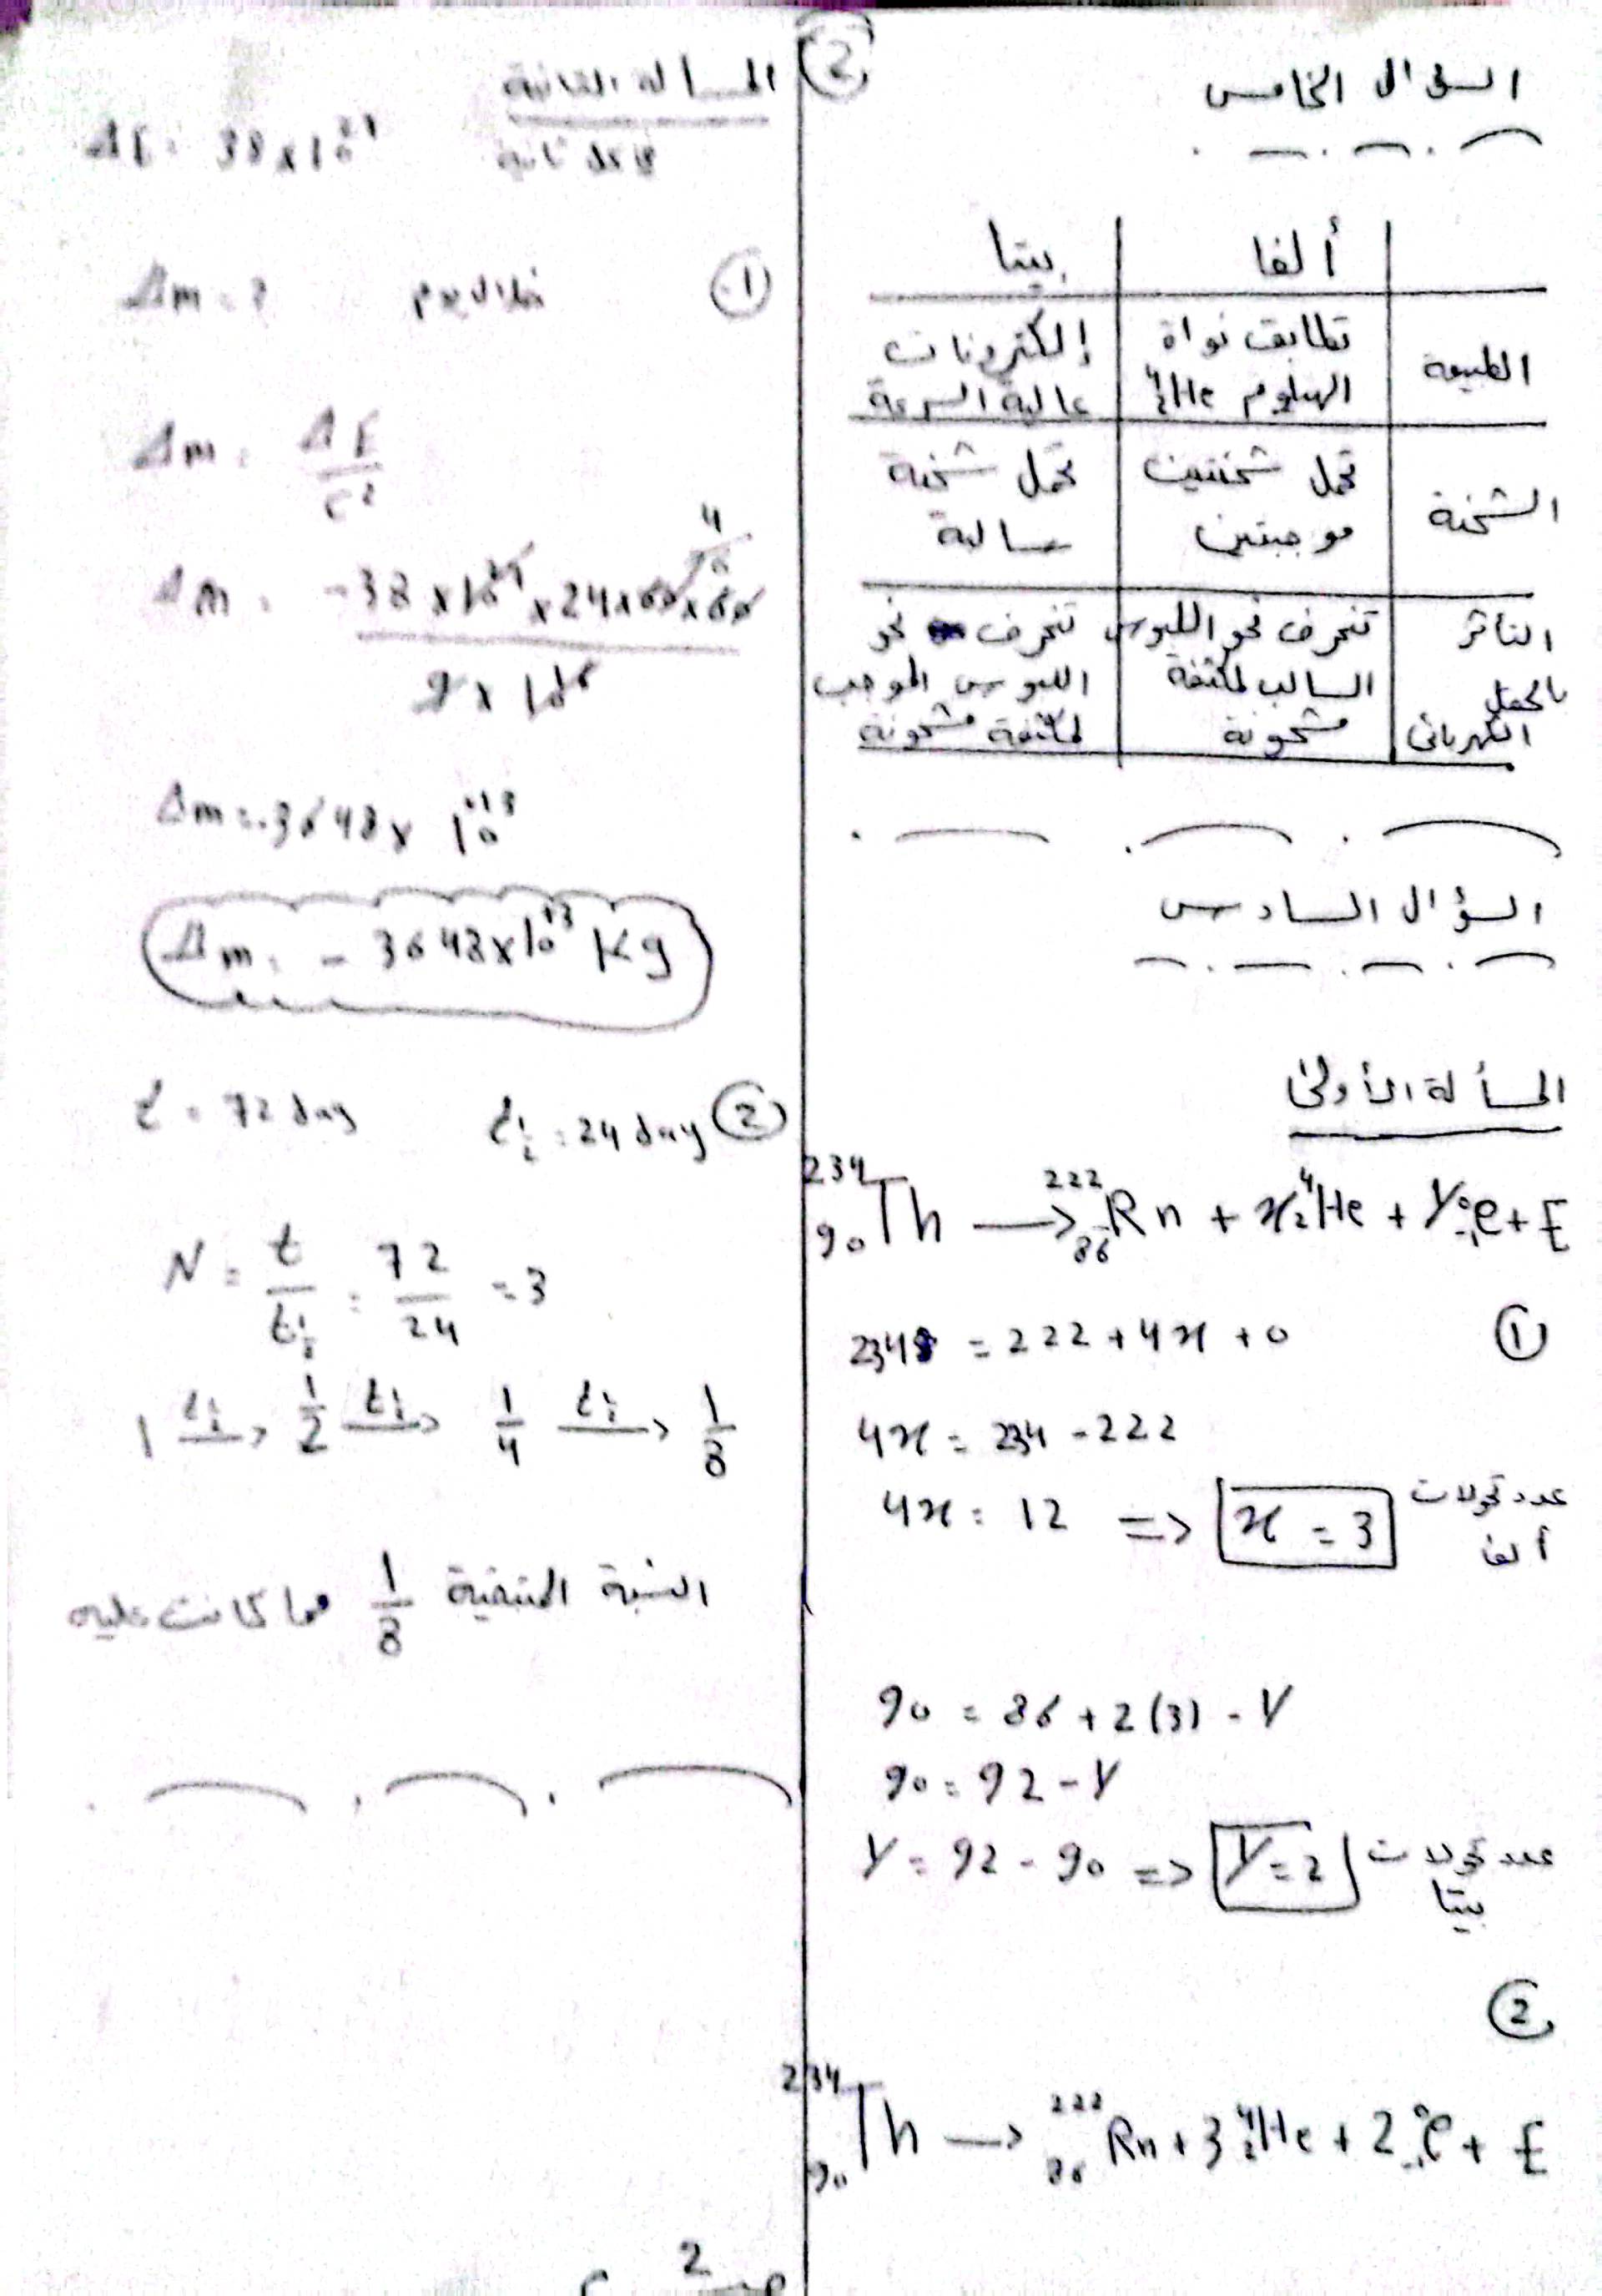 2
السؤال الخامس
ألفا بيتا
الطبيعة تطابق نواة الهيليوم ⁴₂He إلكترونات عالية السرعة
الشحنة تحمل شحنتين موجبتين تحمل شحنة سالبة
التأثر بالحقل الكهربائي تنحرف نحو اللبوس السالب لمكثفة مشحونة تنحرف نحو اللبوس الموجب لمكثفة مشحونة
السؤال السادس
المسألة الأولى
²³⁴₉₀Th → ²²²₈₆Rn + x ⁴₂He + y ⁰₋₁e + E
①
234 = 222 + 4x + 0
4x = 234 - 222
4x = 12 => x = 3 عدد تحولات ألفا
90 = 86 + 2(3) - y
90 = 92 - y
y = 92 - 90 => y = 2 عدد تحولات بيتا
②
²³⁴₉₀Th → ²²²₈₆Rn + 3 ⁴₂He + 2 ⁰₋₁e + E
المسألة الثانية
ΔE = 38 x 10²⁷ في كل ثانية
① Δm = ? خلال يوم
Δm = ΔE / c²
Δm = -38 x 10²⁷ x 24 x 60 x 60 / 9 x 10¹⁶
Δm = -3648 x 10¹³
Δm = - 3648 x 10¹³ Kg
② t½ = 24 day t = 72 day
N = t / t½ = 72 / 24 = 3
1 t½→ 1/2 t½→ 1/4 t½→ 1/8
النسبة المتبقية 1/8 مما كانت عليه
2